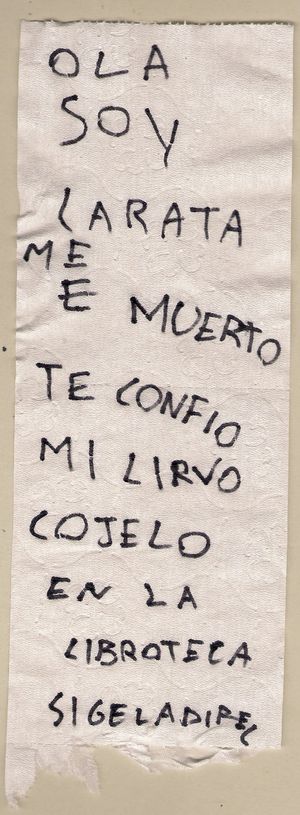 OLA
SOY
LARATA
ME
E MUERTO
TE CONFIO
MI LIRVO
COJELO
EN LA
LIBROTECA